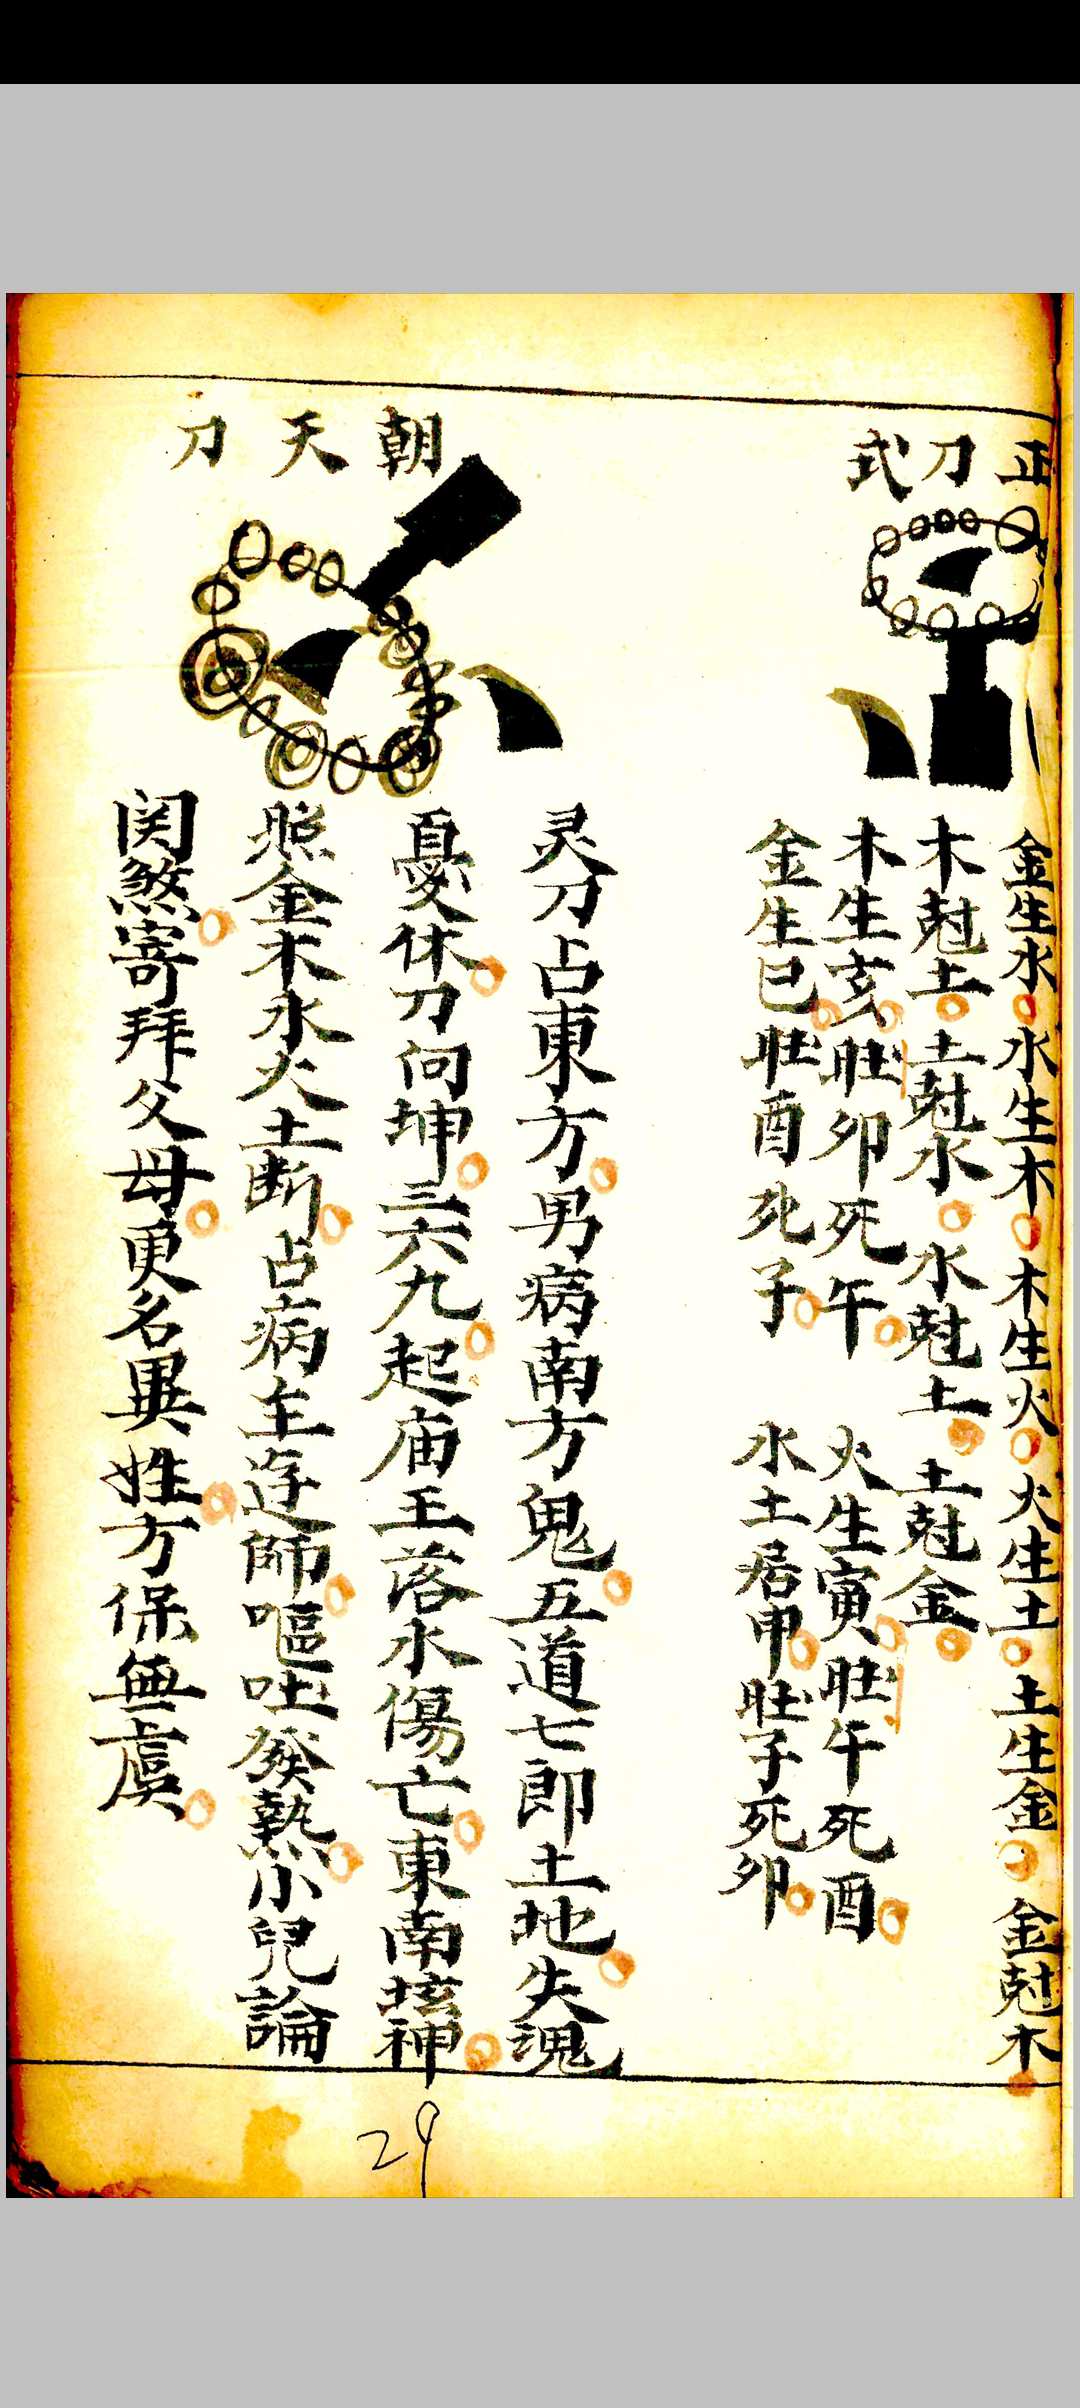 正刀式
金生水水生木木生火火生土土生金金尅木
木尅土土尅水水尅土土尅金
木生亥壯卯死午火生寅壯午死酉
金生巳壯酉死子水土居申壯子死卯
朝天刀
灵刀占東方男病南方鬼五道七郎土地失魂
憂休刀向坤三六九起庙王落水傷亡東南垓神
照金木水火土断占病主迕師嘔吐發熱小兒論
関煞寄拜父母更名異姓方保無虞
29